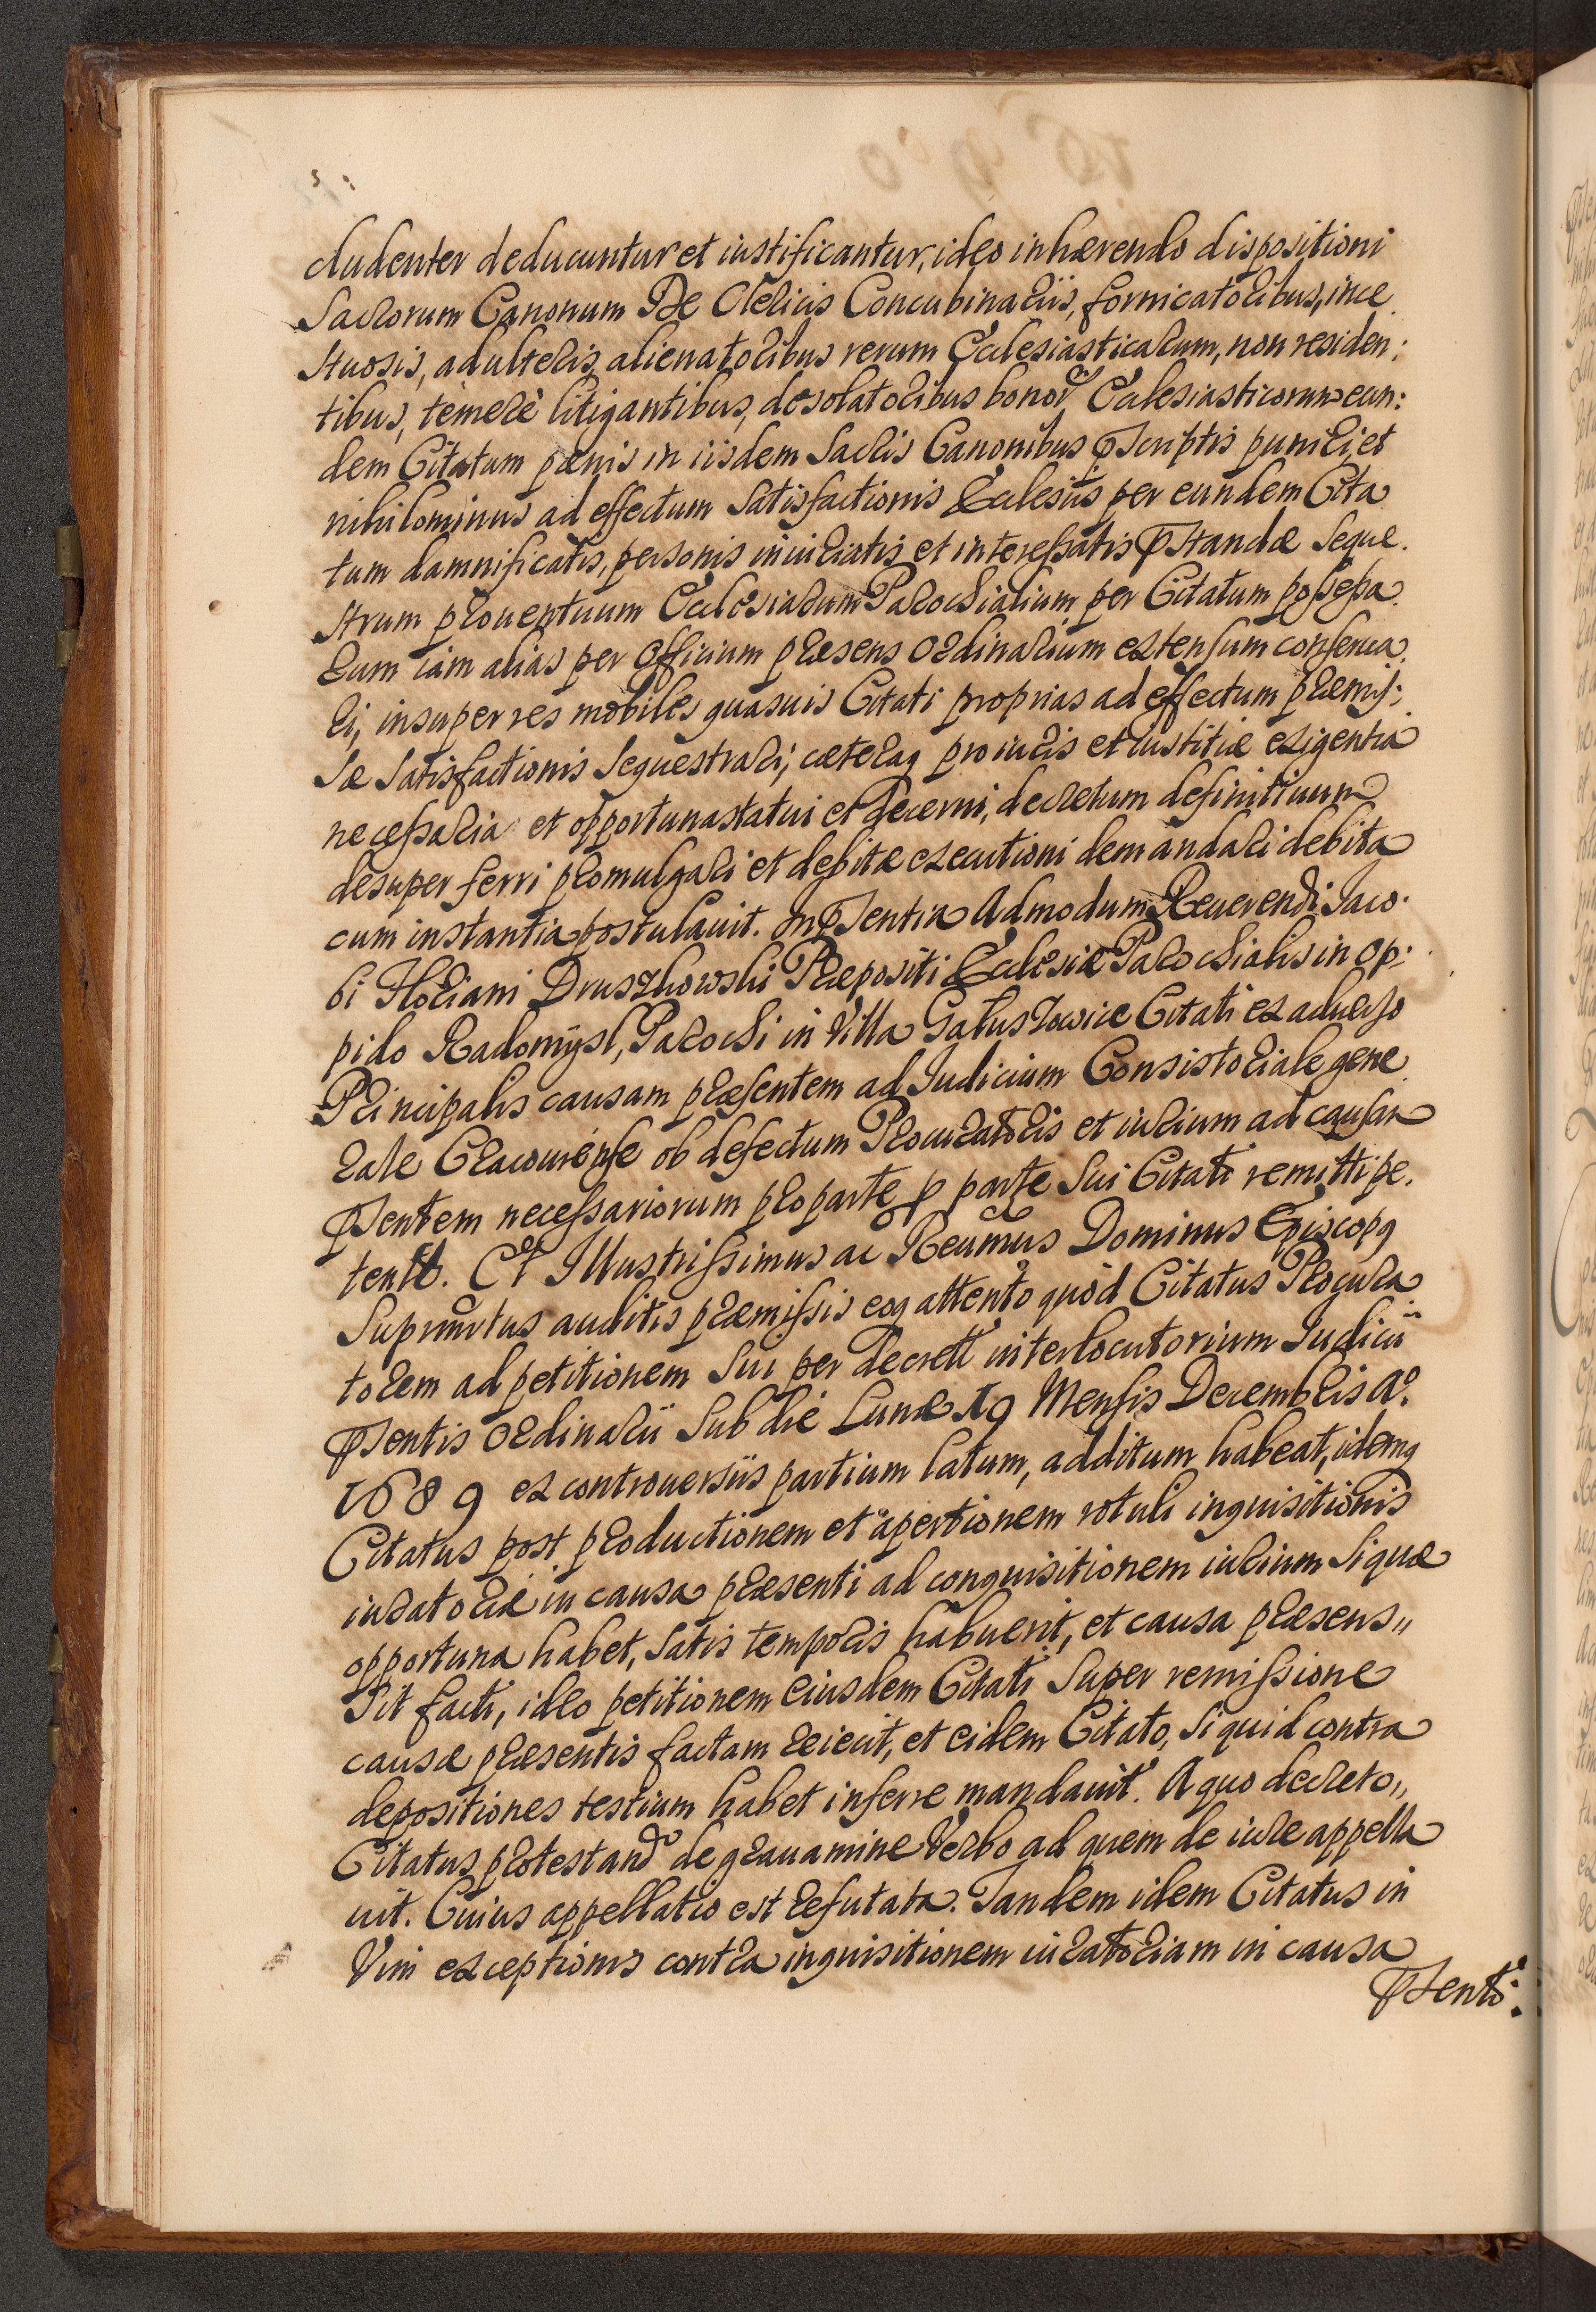 cludenter deducuntur et iustificantur, ideo inhærendo dispositioni
Sacrorum Canonum De Clericis Concubinariis, fornicatoribus, ince
stuosis, adulteris, alienatoribus rerum Ecclesiasticarum, non residen:
tibus, temerè litigantibus, desolatoribus bonor Ecclesiasticorum eun:
dem Citatum pænis in iisdem Sacris Canonibus pscriptis puniri, et
nihilominus ad effectum Satisfactionis Ecclesiis per eundem Cita
tum damnificatis, personis iniuriatis et interessatis pstandæ Seque.
strum prouentuum Ecclesiarum Parochialium per Citatum possessa.
rum iam alias per Officium præsens Ordinarium extensum conserua.
ri, insuper res mobiles quasuis Citati proprias ad effectum præmis:
sæ Satisfactionis Sequestrari, cæteraq pro iuris et iustitiæ exigentia
necessaria et opportuna statui et decerni, decretum definitiuum
desuper ferri promulgari et debitæ executioni demandari debita
cum instantia postulauit. In psentia Admodum Reuerendi Iaco.
bi Floriani Druszkowski Præpositi Ecclesiæ Parochialis in Op:
pido Radomÿsl, Parochi in Villa Gatuszowice Citati ex aduerso
Principalis causam præsentem ad Iudicium Consistoriale gene
rale Cracouiense ob defectum Procuratoris et iurium ad causam
psentem necessariorum pro parte p parte Sui Citati remitti pe.
tentt. Et Illustrissimus ac Reumus Dominus Episcopq
Suprmtus auditis præmissis eoq attento quòd Citatus Procura
torem ad petitionem Sui per decrett interlocutorium Iudicii
psentis Ordinarii Sub die Lunæ 19 Mensis Decembris Aº.
1689 ex controuersiis partium latum, additum habeat, idemq
Citatus post productionem et apertionem rotuli inquisitionis
iuratoriæ in causa præsenti ad conquisitionem iurium Si quæ
opportuna habet, Satis temporis habuerit, et causa præsens"
Sit facti, ideo petitionem eiusdem Citati Super remissione
causæ præsentis factam reiecit, et eidem Citato, Si quid contra
depositiones testium habet inferre mandauit. A quo decreto"
Citatus protestand de grauamine Verbo ad quem de iure appella
uit. Cuius appellatio est refutata. Tandem idem Citatus in
Vim exceptionis contra inquisitionem iuratoriam in causa
psenti: